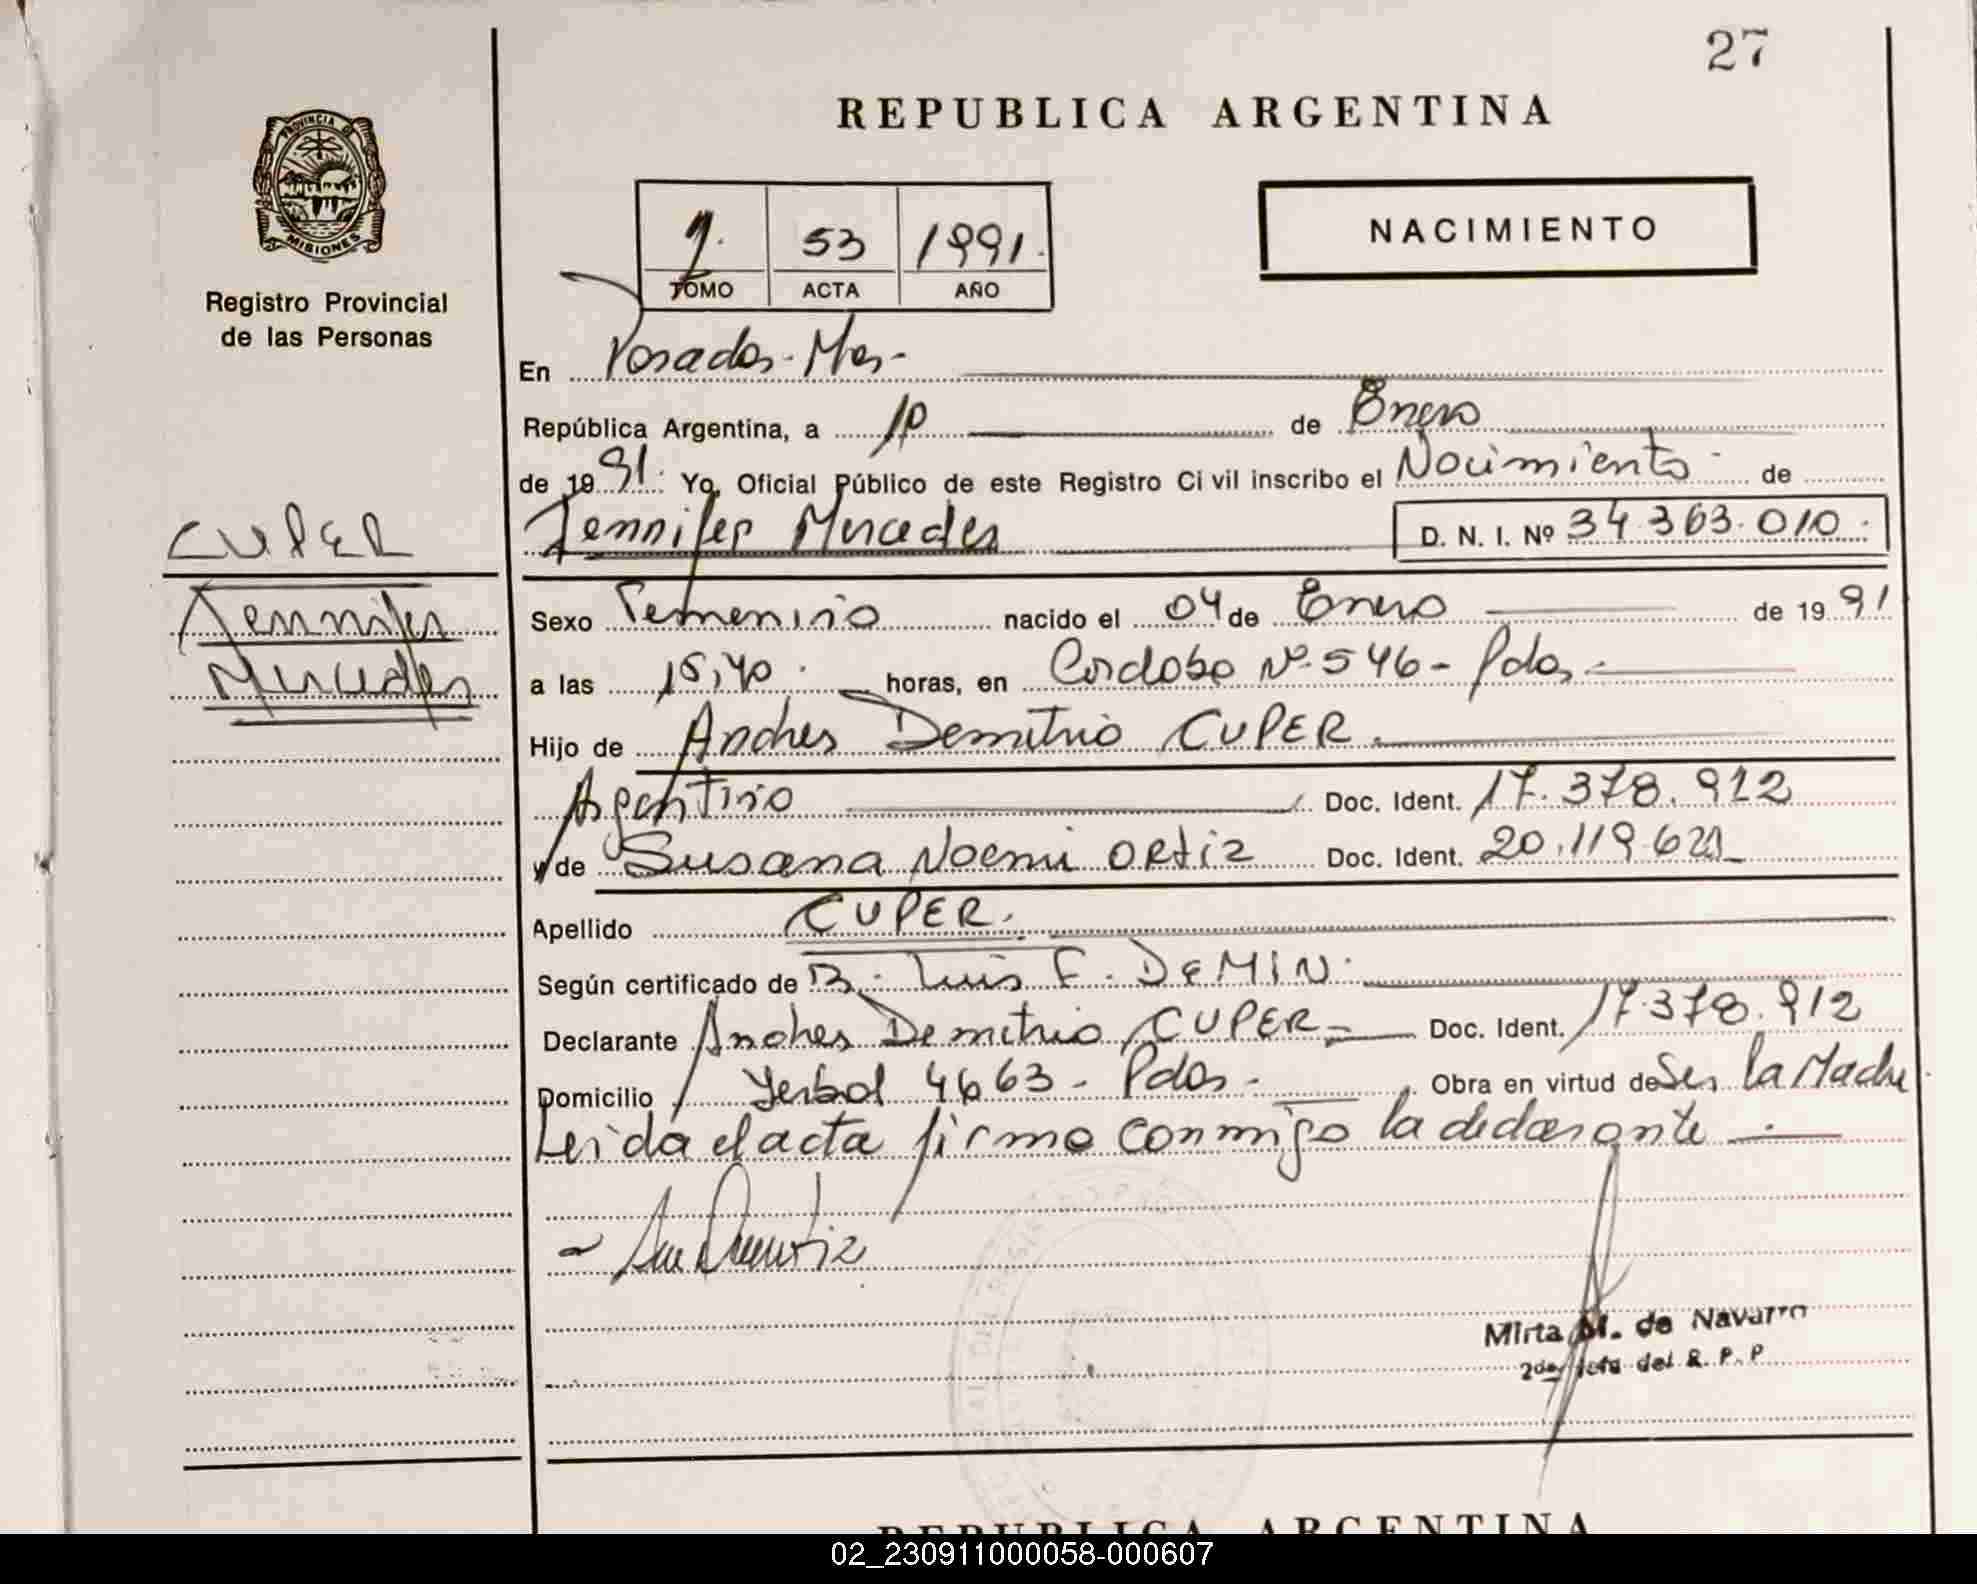 27
REPUBLICA ARGENTINA
PROVINCIA DE
MISIONES
Registro Provincial
de las Personas
53 1991.
TOMO ACTA AÑO
NACIMIENTO
En Posadas - Mnes -
República Argentina, a 10 de Enero
de 1991. Yo, Oficial Público de este Registro Civil inscribo el Nacimiento de
Jennifer Mercedes D. N. I. Nº 34.363.010.
CUPER
Jennifer
Mercedes
Sexo Femenino nacido el 04 de Enero de 1991
a las 15,40. horas, en Cordoba Nº 546 - Pdas -
Hijo de Andres Demitrio CUPER.
Argentino Doc. Ident. 17.378.912
y de Susana Noemi ORtiz Doc. Ident.
Apellido CUPER.
Según certificado de Luis F. DEMIN.
Declarante Andres Demitrio CUPER Doc. Ident. 17.378.912
Domicilio Yerbal 4663 - Pdas - Obra en virtud de Ser la Madre
Leida el acta firma conmigo la declarante
Mirta M. de Navarro
2da jefa del R. P. P
REPUBLICA ARGENTINA
02_230911000058-000607